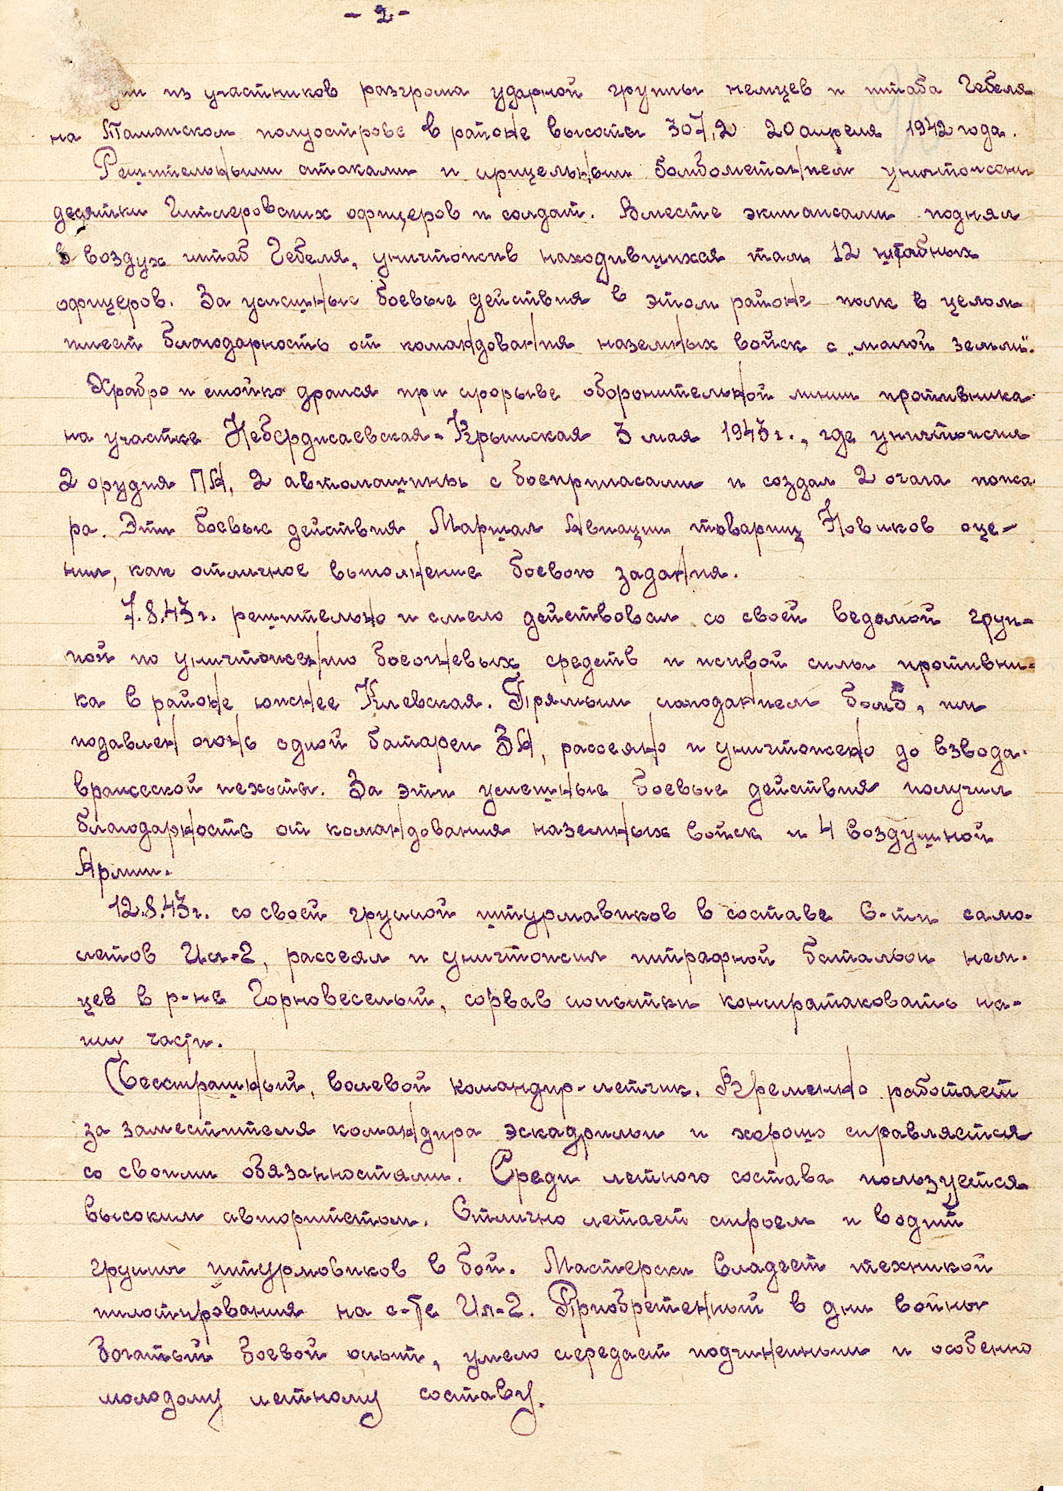 - 2 -
из участников разгрома ударной группы немцев и штаба Гебеля
на Таманском полуострове в районе высоты 307,2 20 апреля 1942 года.
Решительными атаками и прицельным бомбометанием уничтожены
десятки Гитлеровских офицеров и солдат. Вместе экипажами поднял
в воздух штаб Гебеля, уничтожив находившихся там 12 штабных
офицеров. За успешные боевые действия в этом районе полк в целом
имеет благодарность от командования наземных войск с „малой земли".
Храбро и стойко дрался при прорыве оборонительной линии противника
на участке Неберджаевская-Крымская 3 мая 1943 г., где уничтожил
2 орудия ПА, 2 автомашины с боеприпасами и создал 2 очага пожа
ра. Эти боевые действия Маршал Авиации товарищ Новиков оце-
нил, как отличное выполнение боевого задания.
7.8.43г. решительно и смело действовал со своей ведомой груп-
пой по уничтожению боеогневых средств и живой силы противни-
ка в районе южнее Киевская. Прямым попаданием бомб, им
подавлен огонь одной батареи ЗА, рассеяно и уничтожено до взвода
вражеской пехоты. За эти успешные боевые действия получил
благодарность от командования наземных войск и 4 воздушной
Армии.
12.8.43г. со своей группой штурмавиков в составе 6-ти само-
летов Ил-2, рассеял и уничтожил штрафной батальон нем-
цев в р-не Горновеселый, сорвав попытки контратаковать на-
ши части.
Бесстрашный, волевой командир-летчик. Кременно работает
за заместителя командира эскадрильи и хорошо справляется
со своими обязанностями. Среди летного состава пользуется
высоким авторитетом. Отлично летает строем и водит
группы штурмовиков в бой. Мастерски владеет техникой
пилотирования на с-те Ил-2. Приобретенный в дни войны
богатый боевой опыт, умело передает подчиненным и особенно
молодому летному составу.